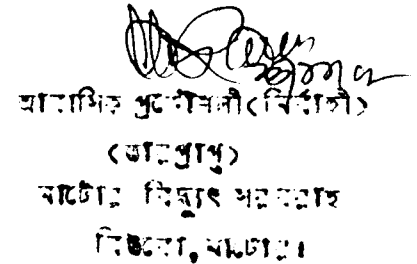 আবাসিক প্রকৌশলী (নির্বাহী)
(ভারপ্রাপ্ত)
নাটোর বিদ্যুৎ সরবরাহ
বিউবো, নাটোর।